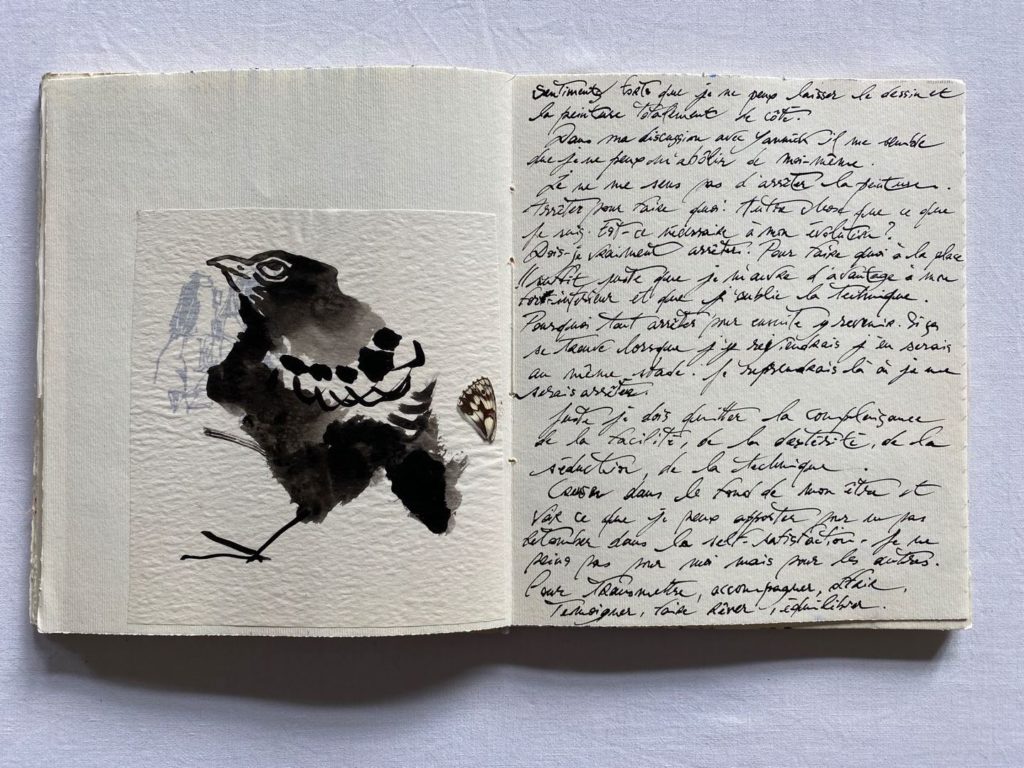 sentiments forts que je ne peux laisser le dessin et
la peinture totalement de côté.
Dans ma discussion avec Yannick il me semble
que je ne peux m'abolir de moi-même.
Je ne me sens pas d'arrêter la peinture.
Arrêter pour faire quoi. Autre chose que ce que
je suis. Est-ce nécessaire à mon évolution?
Dois-je vraiment arrêter. Pour faire quoi à la place
Il suffit juste que je m'ouvre d'avantage à mon
fort-intérieur et que j'oublie la technique.
Pourquoi tout arrêter pour ensuite y revenir. Si ça
se trouve lorsque j'y reviendrais j'en serais
au même stade. Je reprendrais là où je me
serais arrêter.
Juste je dois quitter la complaisance
de la facilité, de la dextérité, de la
séduction, de la technique.
Creuser dans le fond de mon être et
voir ce que je peux apporter pour ne pas
retomber dans la self-satisfaction. Je ne
peins pas pour moi mais pour les autres.
Pour transmettre, accompagner,
Temoigner, faire rêver,